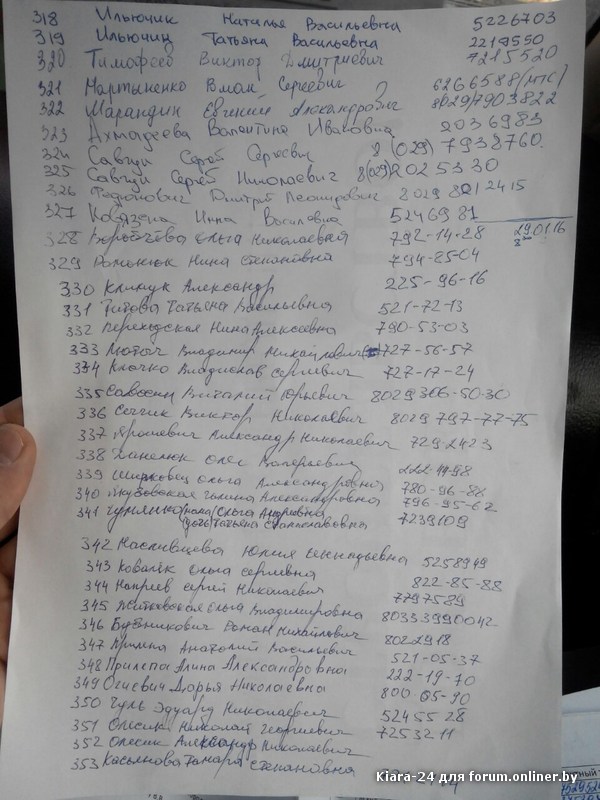 318 Ильючик Наталья Васильевна 5226703
319 Ильючиц Татьяна Васильевна 2219550
320 Тимофеев Виктор Дмитриевич 7215520
321 Мартыненко Сергеевич 6266588(мтс)
322 Шарандин Евгений Александрович 8029/7903822
323 Ахмадеева Валентина Ивановна 2036983
324 Савчуи Сергей Сергеевич 8(029) 7938760
325 Савчуи Сергей Николаевич 8(029)2025330
326 Федонович Дмитрий Леонидович 8029 8012415
327 Кобязева Инна Васильевна 5246981
328 Воробьёва Ольга Николаевна 792-14-28 290116
329 Романюк Нина Степановна 794-85-04
330 Климук Александр 225-96-16
331 Титова Татьяна Васильевна 521-72-13
332 Переходская Нина Алексеевна 790-53-03
333 Лютыч Владимир Михайлович 727-56-57
334 Клочко Владислав Сергеевич 727-17-24
335 Виталий Юрьевич 8029 366-50-30
336 Виктор Николаевич 8029 797-77-75
337 Ярошевич Александр Николаевич 7292423
338 Данелюк Олег Валерьевич
339 Ширковец Ольга Александровна 780-96-88
340 Якубовская Галина Александровна 796-95-62
341 Ольга Андреевна
Татьяна Станиславовна 7239109
342 Наслывцева Юлия 5258949
343 Ковалёк Ольга Сергеевна 822-85-88
344 Сергей Николаевич 7797589
345 Житковская Ольга Владимировна 80333990042
346 Бубникович Роман Михайлович 8022918
347 Анатолий Васильевич 521-05-37
348 Прилепа Алина Александровна 222-19-70
349 Огиевич Дарья Николаевна 800 05-90
350 Гуль Эдуард Николаевич 5245528
351 Олесик Николай Георгиевич 7253211
352 Олесик Александр Николаевич
353 Касьянова Тамара Степановна
Kiara-24 для forum.onliner.by